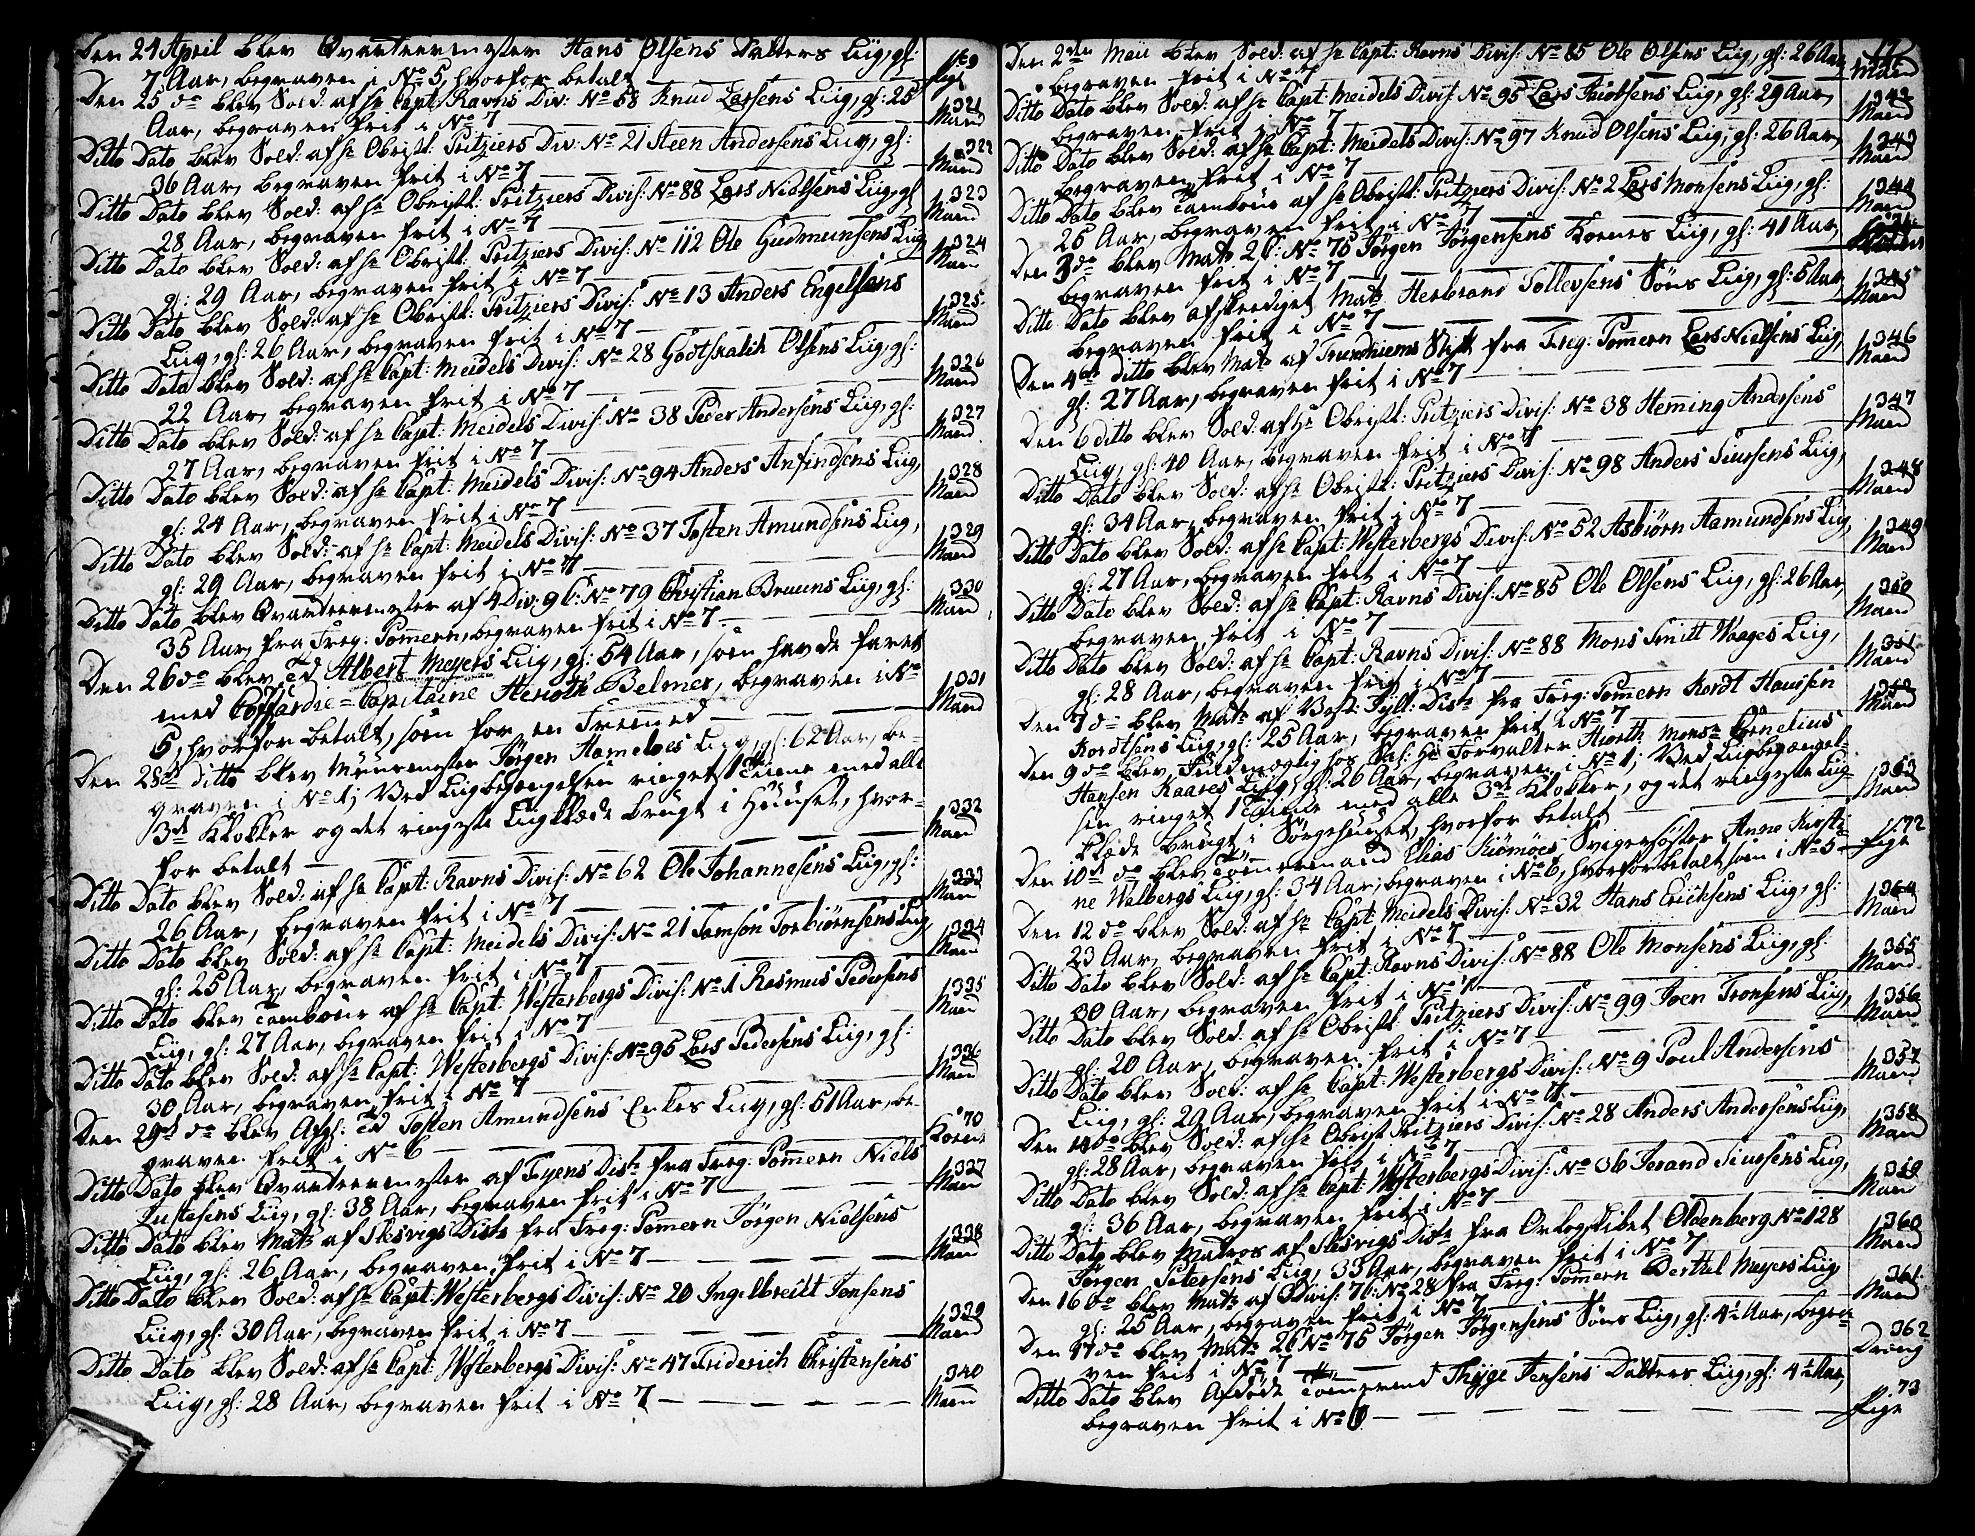 Den 24 April blev Qvarteermester Hans Olsens Datters Liig, gl:
7 Aar, begraven i No 5, hvorfor betalt
69
Pige
Den 25 do blev Sold: af Hr Capt: Ravns Div: No 58 Knud Larsens Liig, gl: 25
Aar, begraven frit i No 7
321
Mand
Ditto Dato blev Sold: af Hr Obristl: Pritziers Div: No 21 Steen Andersens Liig, gl:
36 Aar, begraven frit i No 7
322
Mand
Ditto Dato blev Sold: af Hr Obristl: Pritziers Divis: No 88 Lars Nielsens Liig, gl:
28 Aar, begraven frit i No 7
323
Mand
Ditto Dato blev Sold: af Hr Obristl: Pritziers Divis: No 112 Ole Gudmunsens Liig
gl: 29 Aar, begraven frit i No 7
324
Mand
Ditto Dato blev Sold: af Hr Obristl: Pritziers Divis: No 13 Anders Engelsens
Liig, gl: 26 Aar, begraven frit i No 7
325
Mand
Ditto Dato blev Sold: af Hr Capt: Meidels Divis: No 28 Godtskalck Olsens Liig, gl:
22 Aar, begraven frit i No 7
326
Mand
Ditto Dato blev Sold: af Hr Capt: Meidels Divis: No 38 Peder Andersens Liig, gl:
27 Aar, begraven frit i No 7
327
Mand
Ditto Dato blev Sold: af Hr Capt: Meidels Divis: No 94 Anders Anfindsens Liig,
gl: 24 Aar, begraven frit i No 7
328
Mand
Ditto Dato blev Sold: af Hr Capt: Meidels Divis: No 37 Tosten Amundsens Liig,
gl: 29 Aar, begraven frit i No 7
329
Mand
Ditto Dato blev Qvarteermester af 4 Div: 9 C: No 79 Christian Bruuns Liig, gl:
35 Aar, fra Freg: Pomern, begraven frit i No 7
330
Mand
Den 26 do blev Albert Meyers Liig, gl: 54 Aar, som havde faret
med Coffardie-Capitaine Henoth Belmer, begraven i No
5, hvorfor betalt, som for en Fremmed
331
Mand
Den 28de ditto blev Muurmester Jørgen Hameloes Liig, gl: 62 Aar, be-
graven i No 1; Ved Liigbegiengelsen ringet 1 Time med alle
3de Klokker og det ringeste Liigklæde brugt i Huuset, hvor-
for betalt
332
Mand
Ditto Dato blev Sold: af Hr Capt: Ravns Divis: No 62 Ole Johannesens Liig, gl:
26 Aar, begraven frit i No 7
333
Mand
Ditto Dato blev Sold: af Hr Capt: Meidels Divis: No 21 Samson Torbiørnsens Liig,
gl: 25 Aar, begraven frit i No 7
334
Mand
Ditto Dato blev Tambour af Hr Capt: Westerbergs Divis: No 1 Rasmus Pedersens
Liig, gl: 27 Aar, begraven frit i No 7
335
Mand
Ditto Dato blev Sold: af Hr Capt: Westerbergs Divis: No 95 Lars Pedersens Liig, gl:
30 Aar, begraven frit i No 7
336
Mand
Den 29de do blev Afg: Tosten Amundsens Enkes Liig, gl: 51 Aar, be-
graven frit i No 6
70
Kone
Ditto Dato blev Qvarteermester af Fyens Distr: fra Freg: Pomern Niels
Justesens Liig, gl: 38 Aar, begraven frit i No 7
337
Mand
Ditto Dato blev Matr: af Slesvigs Distr: fra Freg: Pomern Jørgen Nielsens
Liig, gl: 26 Aar, begraven frit i No 7
338
Mand
Ditto Dato blev Sold: af Hr Capt: Westerbergs Divis: No 20 Ingelbreidt Jonsens
Liig, gl: 30 Aar, begraven frit i No 7
339
Mand
Ditto Dato blev Sold: af Hr Capt: Westerbergs Divis: No 47 Friderich Christensens
Liig, gl: 28 Aar, begraven frit i No 7
340
Mand
Den 2den Maii blev Sold: af Hr Capt: Ravns Divis: No 85 Ole Olsens Liig, gl: 26 Aar,
begraven frit i No 7
Mand
Ditto Dato blev Sold: af Hr Capt: Meidels Divis: No 95 Lars Jacobsens Liig, gl: 29 Aar,
begraven frit i No 7
342
Mand
Ditto Dato blev Sold: af Hr Capt: Meidels Divis: No 97 Knud Olsens Liig, gl: 26 Aar,
begraven frit i No 7
343
Mand
Ditto Dato blev Tambour af Hr Obristl: Pritziers Divis: No 2 Lars Monsens Liig, gl:
25 Aar, begraven frit i No 7
344
Mand
Den 3de blev Matr: 2 C: No 75 Jørgen Jørgensens Kones Liig, gl: 41 Aar,
begraven frit i No 7
Ditto Dato blev afskeediget Matr: Herbrand Tollevsens Søns Liig, gl: 5 Aar
begraven frit i No 7
345
Mand
Den 4de ditto blev Matr: af Trundhiems Stift fra Freg: Pomern Lars Nielsens Liig,
gl: 27 Aar, begraven frit i No 7
346
Mand
Den 6 ditto blev Sold: af Hr Obristl: Pritziers Divis: No 38 Heming Andersens
Liig, gl: 40 Aar, begraven frit i No 7
347
Mand
Ditto Dato blev Sold: af Hr Obristl: Pritziers Divis: No 98 Anders Siursens Liig,
gl: 34 Aar, begraven frit i No 7
348
Mand
Ditto Dato blev Sold: af Hr Capt: Westerbergs Divis: No 52 Asbiørn Aamundsens Liig,
gl: 27 Aar, begraven frit i No 7
349
Mand
Ditto Dato blev Sold: af Hr Capt: Ravns Divis: No 85 Ole Olsens Liig, gl: 26 Aar,
begraven frit i No 7
350
Mand
Ditto Dato blev Sold: af Hr Capt: Ravns Divis: No 88 Mons Smitt Waages Liig,
gl: 28 Aar, begraven frit i No 7
351
Mand
Den 7 do blev Matr: af Vest Jyll: Distr: fra Freg: Pomern Kordt Hanssen
Kordtsens Liig, gl: 25 Aar, begraven frit i No 7
352
Mand
Den 9 do blev Fuldmægtig hos Forvalter Hiorth Monsr Cornelius
Hansen Kaares Liig, gl: 26 Aar, begraven i No 1; Ved Liigbegiengel-
sen ringet 1 Time med alle 3de Klokker, og det ringeste Liig-
klæde brugt i Sørgehuuset, hvorfor betalt
353
Mand
Den 10de do blev Tømermand Elias Kiømøes Svigersøster Anne Kirsti-
ne Walbergs Liig, gl: 34 Aar, begraven i No 6, hvorfor betalt som i No 5
72
Pige
Den 12 do blev Sold: af Hr Capt: Meidels Divis: No 32 Hans Erichsens Liig, gl:
23 Aar, begraven frit i No 7
354
Mand
Ditto Dato blev Sold: af Hr Capt: Ravns Divis: No 88 Ole Monsens Liig, gl:
30 Aar, begraven frit i No 7
355
Mand
Ditto Dato blev Sold: af Hr Obristl: Pritziers Divis: No 99 Joen Tronsens Liig,
gl: 20 Aar, begraven frit i No 7
356
Mand
Ditto Dato blev Sold: af Hr Capt: Westerbergs Divis: No 9 Poul Andersens
Liig, gl: 29 Aar, begraven frit i No 7
357
Mand
Den 14 do blev Sold: af Hr Obrist Pritziers Divis: No 28 Anders Andersens Liig,
gl: 28 Aar, begraven frit i No 7
358
Mand
Ditto Dato blev Sold: af Hr Capt: Westerbergs Divis: No 36 Jerand Siursens Liig,
gl: 36 Aar, begraven frit i No 7
359
Mand
Ditto Dato blev Matros af Slesvigs Distr: fra Orlogskibet Oldenborg No 128
Jørgen Petersens Liig, 33 Aar, begraven frit i No 7
360
Mand
Den 16 do blev Matr: af Divis: 7 C: No 28 fra Freg: Pomern Berthel Meyers Liig
gl: 25 Aar, begraven frit i No 7
361
Mand
Den 17 do blev Matr: 2 C No 75 Jørgen Jørgensens Søns Liig, gl: 4½ Aar, begra-
ven frit i No 7
362
Dreng
Ditto Dato blev Afdøde Tømermand Thyge Jensens Datters Liig, gl: 4½ Aar,
begraven frit i No 6
73
Pige